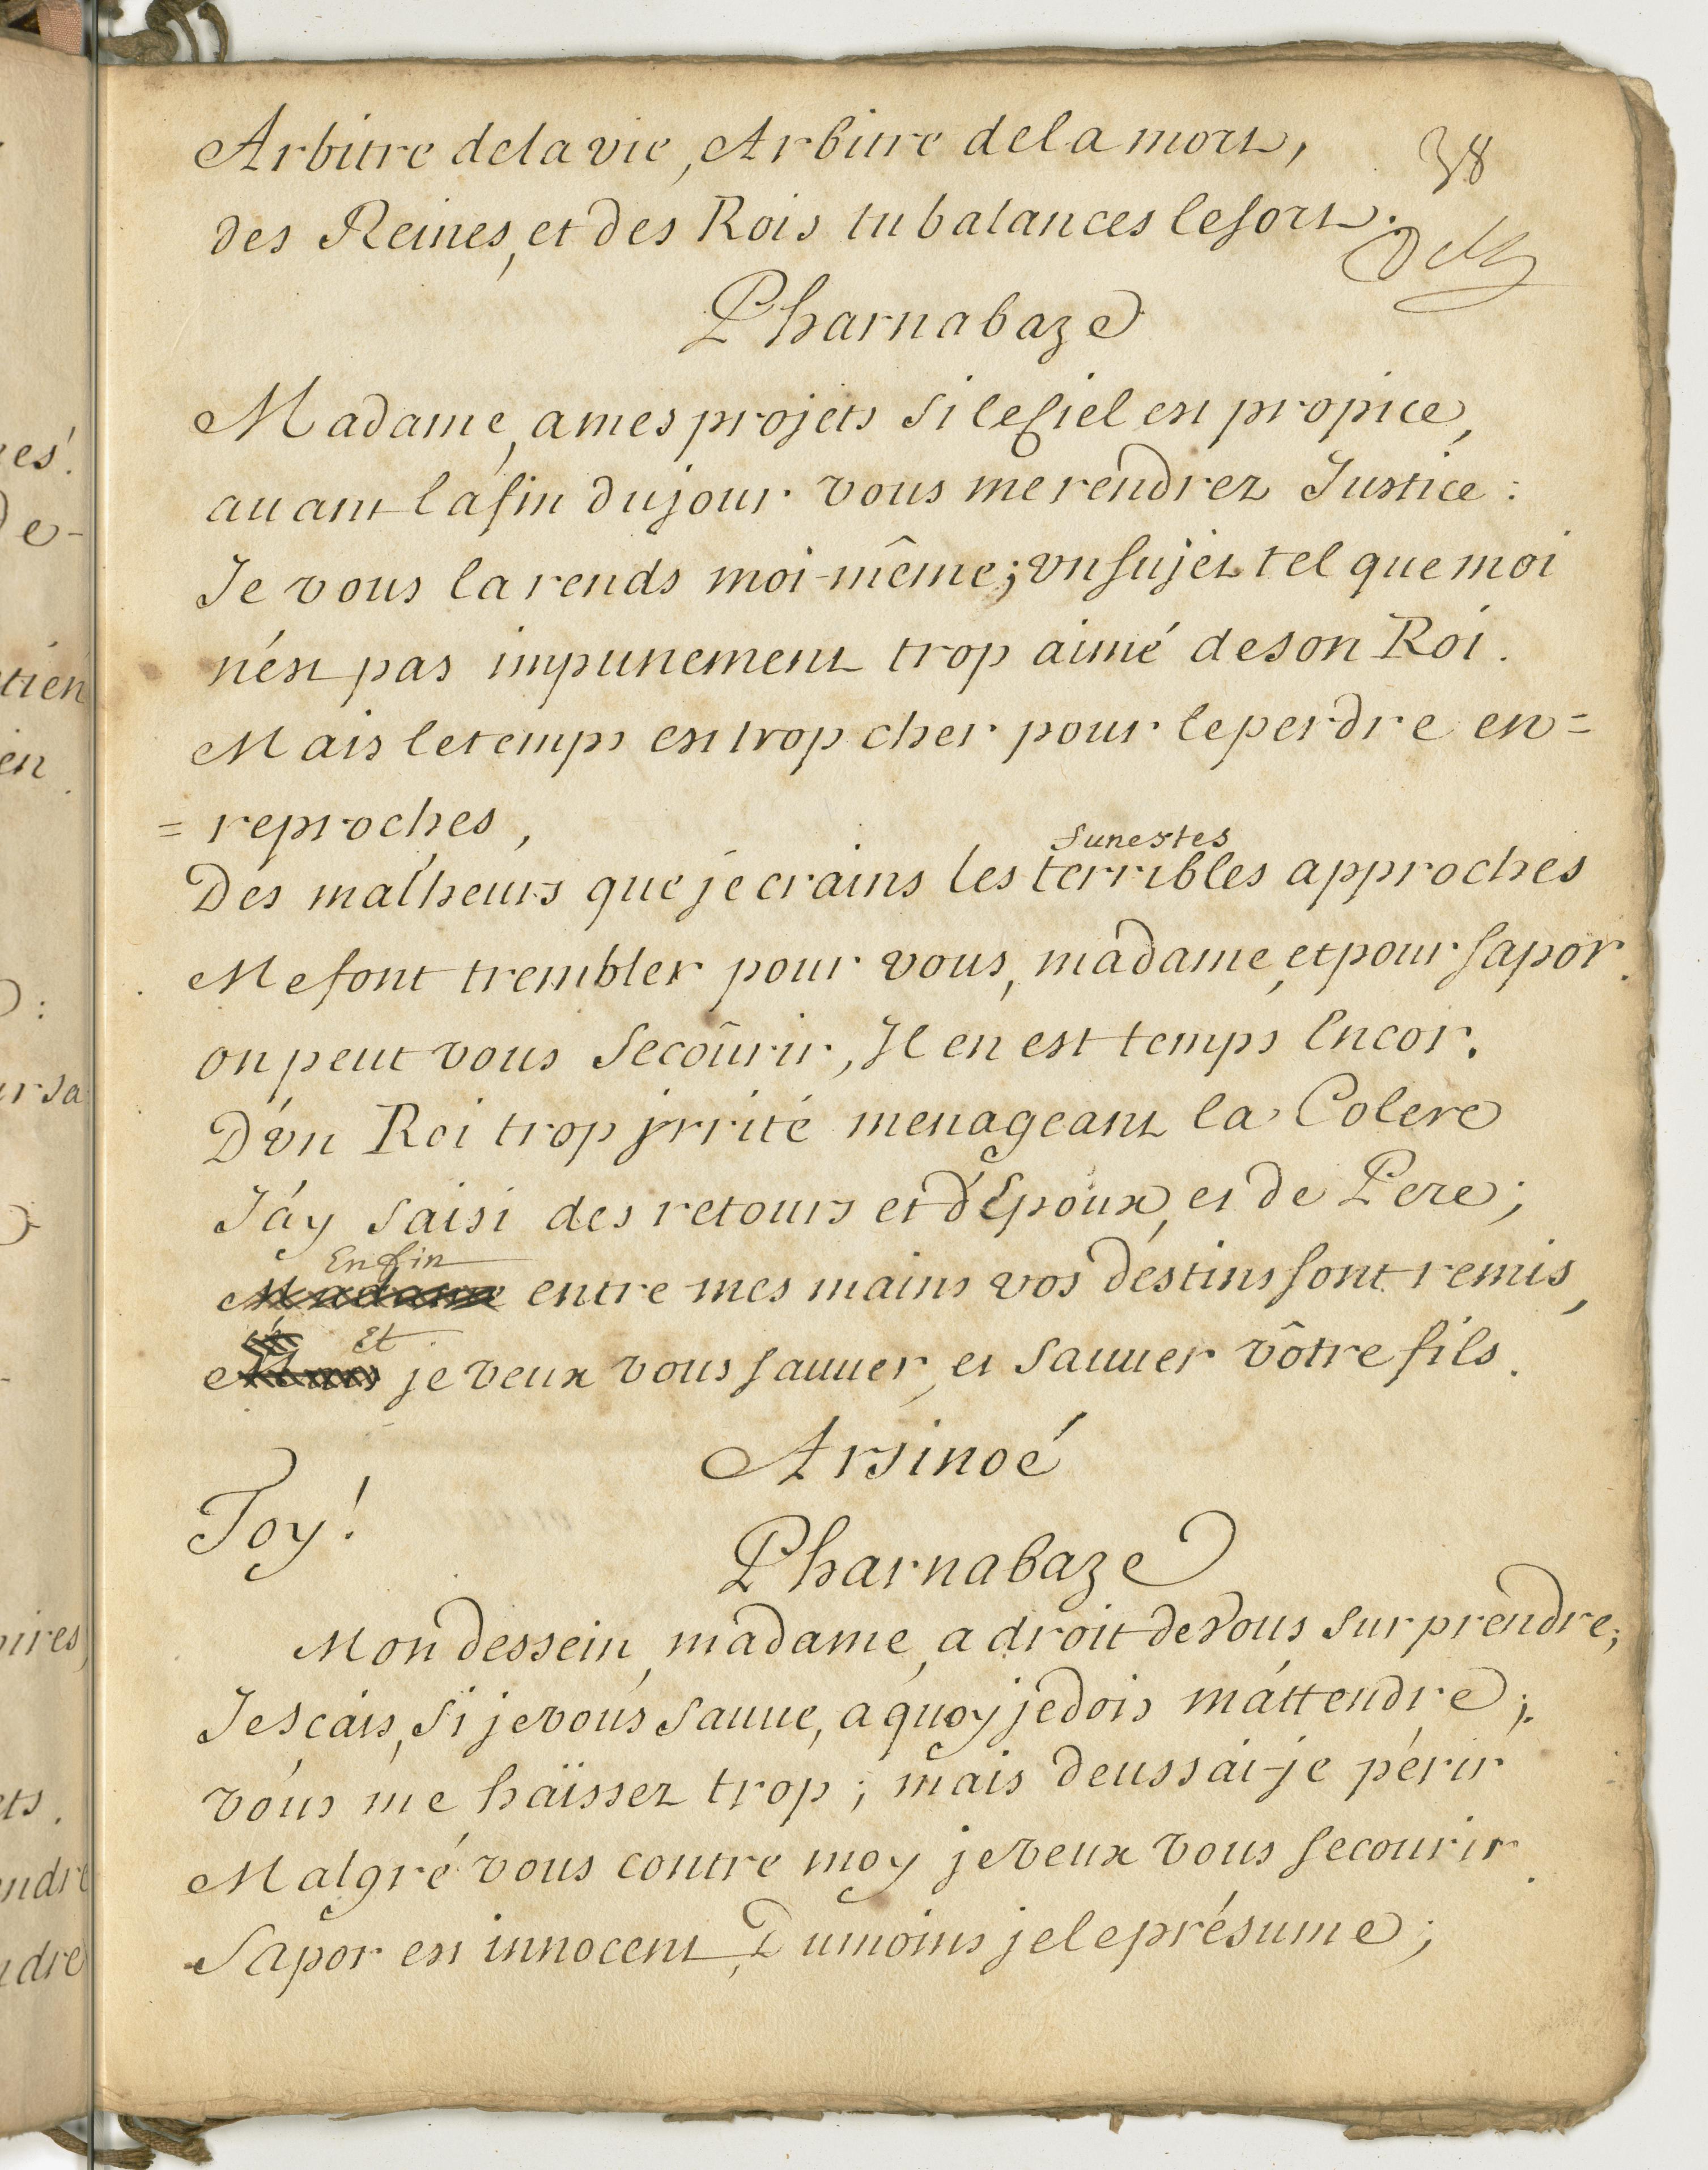 Arbitre de la vie, Arbitre de la mort,
38
des Reines, et des Rois tu balances le sort.
Pharnabaze
Madame, a mes projets si le Ciel est propice,
auant la fin du jour vous me rendrez Justice :
Je vous la rends moi-même; vn sujet tel que moi
n'ést pas impunement trop aimé de son Roi.
Mais le temps est trop cher pour le perdre en=
= reproches,
funestes
Des malheurs que je crains les terribles approches
Me font trembler pour vous, madame, et pour sapor.
on peut vous secoûrir, Il en est temps Encor.
D'vn Roi trop jrrité menageant la Colere
J'áy saisi des retours et d'Epoux, et de Pere;
Enfin
Madame entre mes mains vos destins sont remis,
Et
Mais je veux vous sauuer, et sauuer vôtre fils.
Arsinoé
Toy!
Pharnabaze
Mon dessein, madame, a droit de vous surprendre;
Je scais, si je vous sauue, a quoy je dois m'attendre;
vous me haïssez trop; mais deussai-je périr
Malgré vous contre moy je veux vous secourir.
Sapor est innocent, Du moins je le présume;